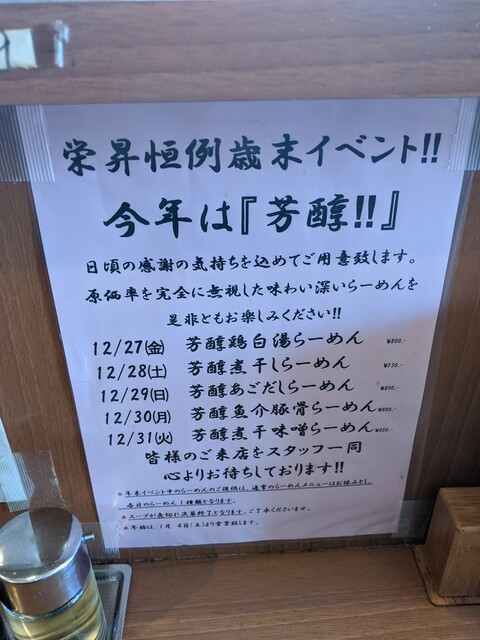 栄昇恒例歳末イベント!!
今年は『芳醇!!』
日頃の感謝の気持ちを込めてご用意致します。
原価率を完全に無視した味わい深いらーめんを
是非ともお楽しみください!!
12/27(金) 芳醇鶏白湯らーめん ¥800.-
12/28(土) 芳醇煮干しらーめん ¥750.-
12/29(日) 芳醇あごだしらーめん ¥800.-
12/30(月) 芳醇魚介豚骨らーめん ¥800.-
12/31(火) 芳醇煮干味噌らーめん ¥800.-
皆様のご来店をスタッフ一同
心よりお待ちしております!!
※年末イベント中のらーめんのご提供は、通常のらーめんメニューはお休みとし、
毎日のらーめん1種類となります。
※スープが売切れ次第終了となります。ご了承くださいませ。
※年始は1月4日(土)より営業致します。